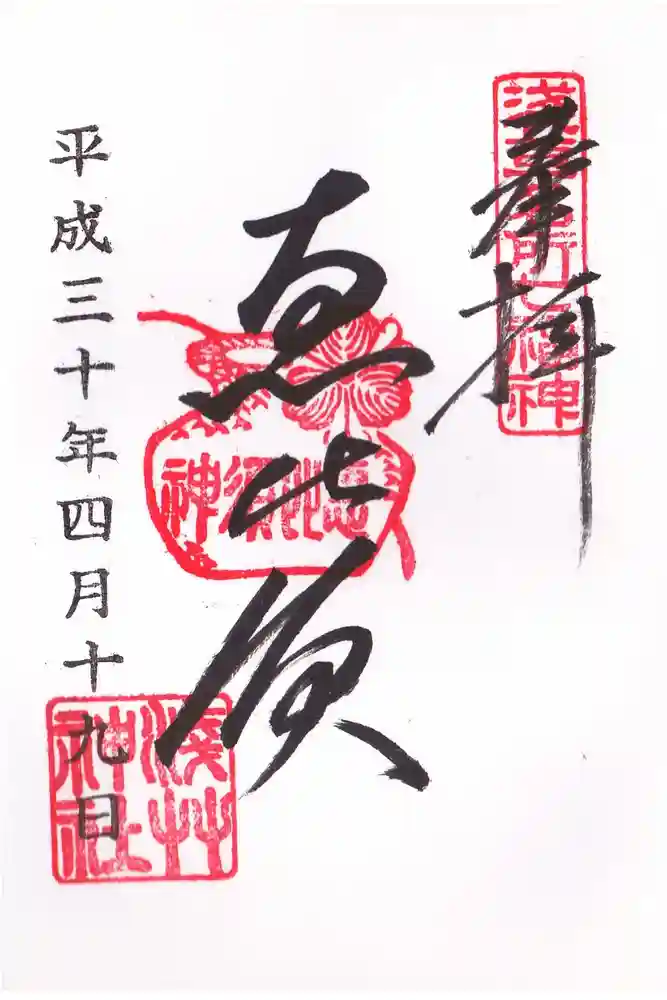 奉拝
浅草名所七福神
恵比須
恵比須神
平成三十年四月十九日
浅草神社